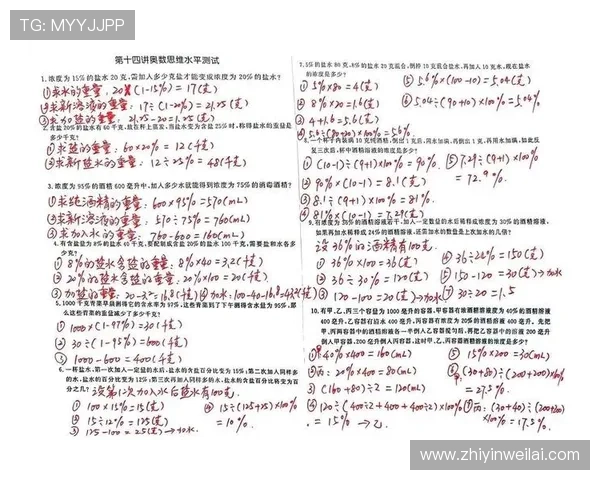 TG: MYYJJPP
第十四讲奥数思维水平测试
1.浓度为15%的盐水20克,需加入多少克盐才能变成浓度为20%的盐水?
①求水的重量: 20×(1-15%)=17(克)
②求新溶液的重量: 17÷(1-20%)=21.25(克)
③求加盐的重量: 21.25-20=1.25(克)
2.含盐20%的盐水有60千克,放在秤上蒸发,当盐水变为含盐25%时,称得盐水的重量是多少千克?
①求盐的重量: 60×20%=12(千克)
②求新盐水的重量: 12÷25%=48(千克)
3.浓度为95%的酒精600毫升中,加入多少水就能得到浓度为75%的消毒酒精?
①求纯酒精的重量: 600×95%=570(mL)
②求新溶液的重量: 570÷75%=760(mL)
③求加入水的重量: 760-600=160(mL)
4.有含盐为8%的盐水40千克,要配制成含盐20%的盐水100千克,需要盐和水各多少克?
①8%的盐水含盐的重量: 8%×40=3.2(千克)
②20%的盐水含盐的重量: 20%×100=20(千克)
③加盐的重量: 20-3.2=16.8(千克) ④加水: 100-40-16.8=43.2(千克)
5.1000千克青菜早晨测得它的含水率为97%,这些青菜到了下午测得含水量为95%,那么这些青菜的重量减少了多少千克?
①1000×(1-97%)=30(千克)
②30÷(1-95%)=600(千克)
③1000-600=400(千克)
6.一杯盐水,第一次加入一定量的水后,盐水的含盐百分比变为15%;第二次加入同样多的水,盐水的含盐百分比变为12%;第三次再加入同样多的水,盐水的含盐百分比将变为百分之几?
设第1次加入水后盐水有100克.
①100×15%=15(克)
②15÷12%=125(克)
③125-100=25(克)→加水
④15÷(125+25)×100%
=10%
7.5%的盐水80克,8%的盐水20克混合,倒掉10克混合盐水,再加入10克水,现在盐水的浓度是多少?
①5%×80=4(克)
②8%×20=1.6(克)
③4+1.6=5.6(克)
④5.6÷(80+20)×100%=5.6%
⑤5.6%×(100-10)=5.04(克)
⑥5.04÷(90+10)×100%=5.04%
8.一个杯子内装满10克纯酒精,倒出1克后,用水加满,再倒出1克,再用水加满,如此反复三次后,杯中酒精溶液的浓度是多少?
①(10-1)÷(9+1)×100%=90%
②90%×(10-1)=8.1(克)
③8.1÷(9+1)×100%=81%
④81%×(10-1)=7.29(克)
⑤7.29÷(9+1)×100%
=72.9%
9.有浓度为36%的酒精溶液若干,加入一定数量的水后稀释成浓度为30%的酒精溶液,如果再加水稀释成24%的酒精溶液,还需加水的数量是上次加水的几倍?
设36%的酒精有100克.
①36%×100=36(克)
②36÷30%=120(克)
③120-100=20(克)→加水
④36÷24%=150(克)
⑤150-120=30(克)→加水
⑦30÷20=1.5
10.有甲、乙、丙三个容器为1000毫升的容器,甲容器有浓度为40%的酒精溶液400毫升,乙容器有清水400毫升,丙容器有浓度为20%的酒精溶液400毫升,先把甲、丙两容器中的酒精溶液各一半倒入乙容器搅匀后,再把乙容器中的溶液200毫升倒入甲容器,200毫升倒入丙容器,这时甲、乙、丙容器中的溶液的浓度是多少?
①甲:40%×400=160(mL)
②丙: 20%×400=80(mL)
③(160+80)÷2=120(mL)
④120÷(400÷2+400+400÷2)×100%
=15%→乙
⑤15%×200=30(mL)
⑥(30+80)÷(200+200)×100%
=27.5%
⑦丙: (30+40)÷(200+200)
×100%=17.5%
www.zhiyinweilai.com